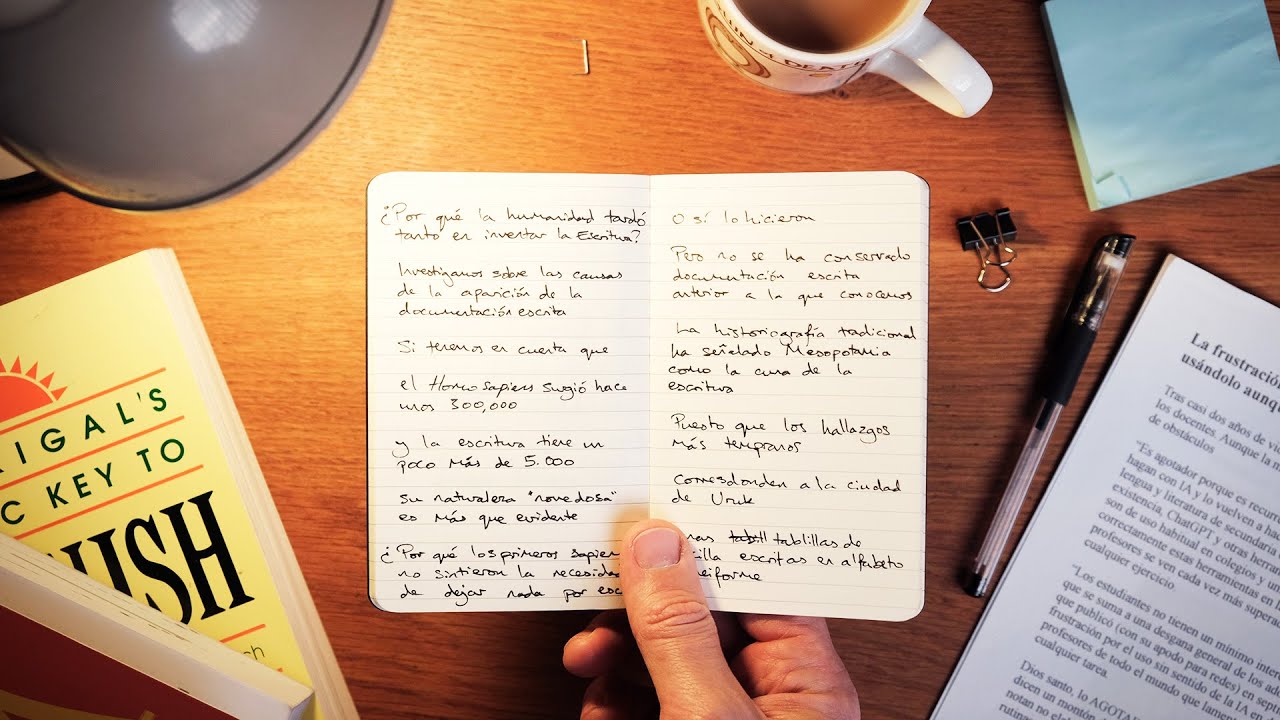 ¿Por qué la humanidad tardó
tanto en inventar la Escritura?
Investigamos sobre las causas
de la aparición de la
documentación escrita
Si tenemos en cuenta que
el Homo sapiens sugió hace
unos 300,000
y la escritura tiene un
poco más de 5.000
su naturaleza "novedosa"
es más que evidente
¿Por qué los primeros sapien
no sintieron la necesida
de dejar nada por esc
O sí lo hicieron
Pero no se ha conservado
documentación escrita
anterior a la que conocemos
La historiografía tradicional
ha señalado Mesopotamia
como la cuna de la
escritura
Puesto que los hallazgos
más tempranos
corresponden a la ciudad
de Uruk
unas tabll tablillas de
cilla escritas en alfabeto
neiforme
RIGAL'S
C KEY TO
ISH
ch
DEATH
La frustración
usándolo aunq
Tras casi dos años de v
los docentes. Aunque la
de obstáculos
"Es agotador porque es recur
hagan con IA y lo vuelven a ha
lengua y literatura de secundaria
existencia. ChatGPT y otras herram
son de uso habitual en colegios y un
correctamente estas herramientas en
profesores se ven cada vez más supera
cualquier ejercicio.
"Los estudiantes no tienen un mínimo inter
que se suma a una desgana general de los ad
que publicó (con su apodo para redes) en sept
frustración por el uso sin sentido de la IA en
profesores de todo el mundo que lamen
cualquier tarea.
Dios santo, lo AGOTA
dicen un montón
notan no ele
rutina